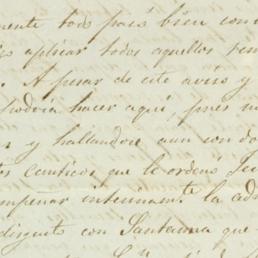 mente todo pais bien con
aplicar todos aquellos rem
. A pesar de este aviso y
podria hacer aqui, pues
y hallandose aun con do
causticos que le ordenó
empeñar interinam.te la ad
disgusto con Santanna que